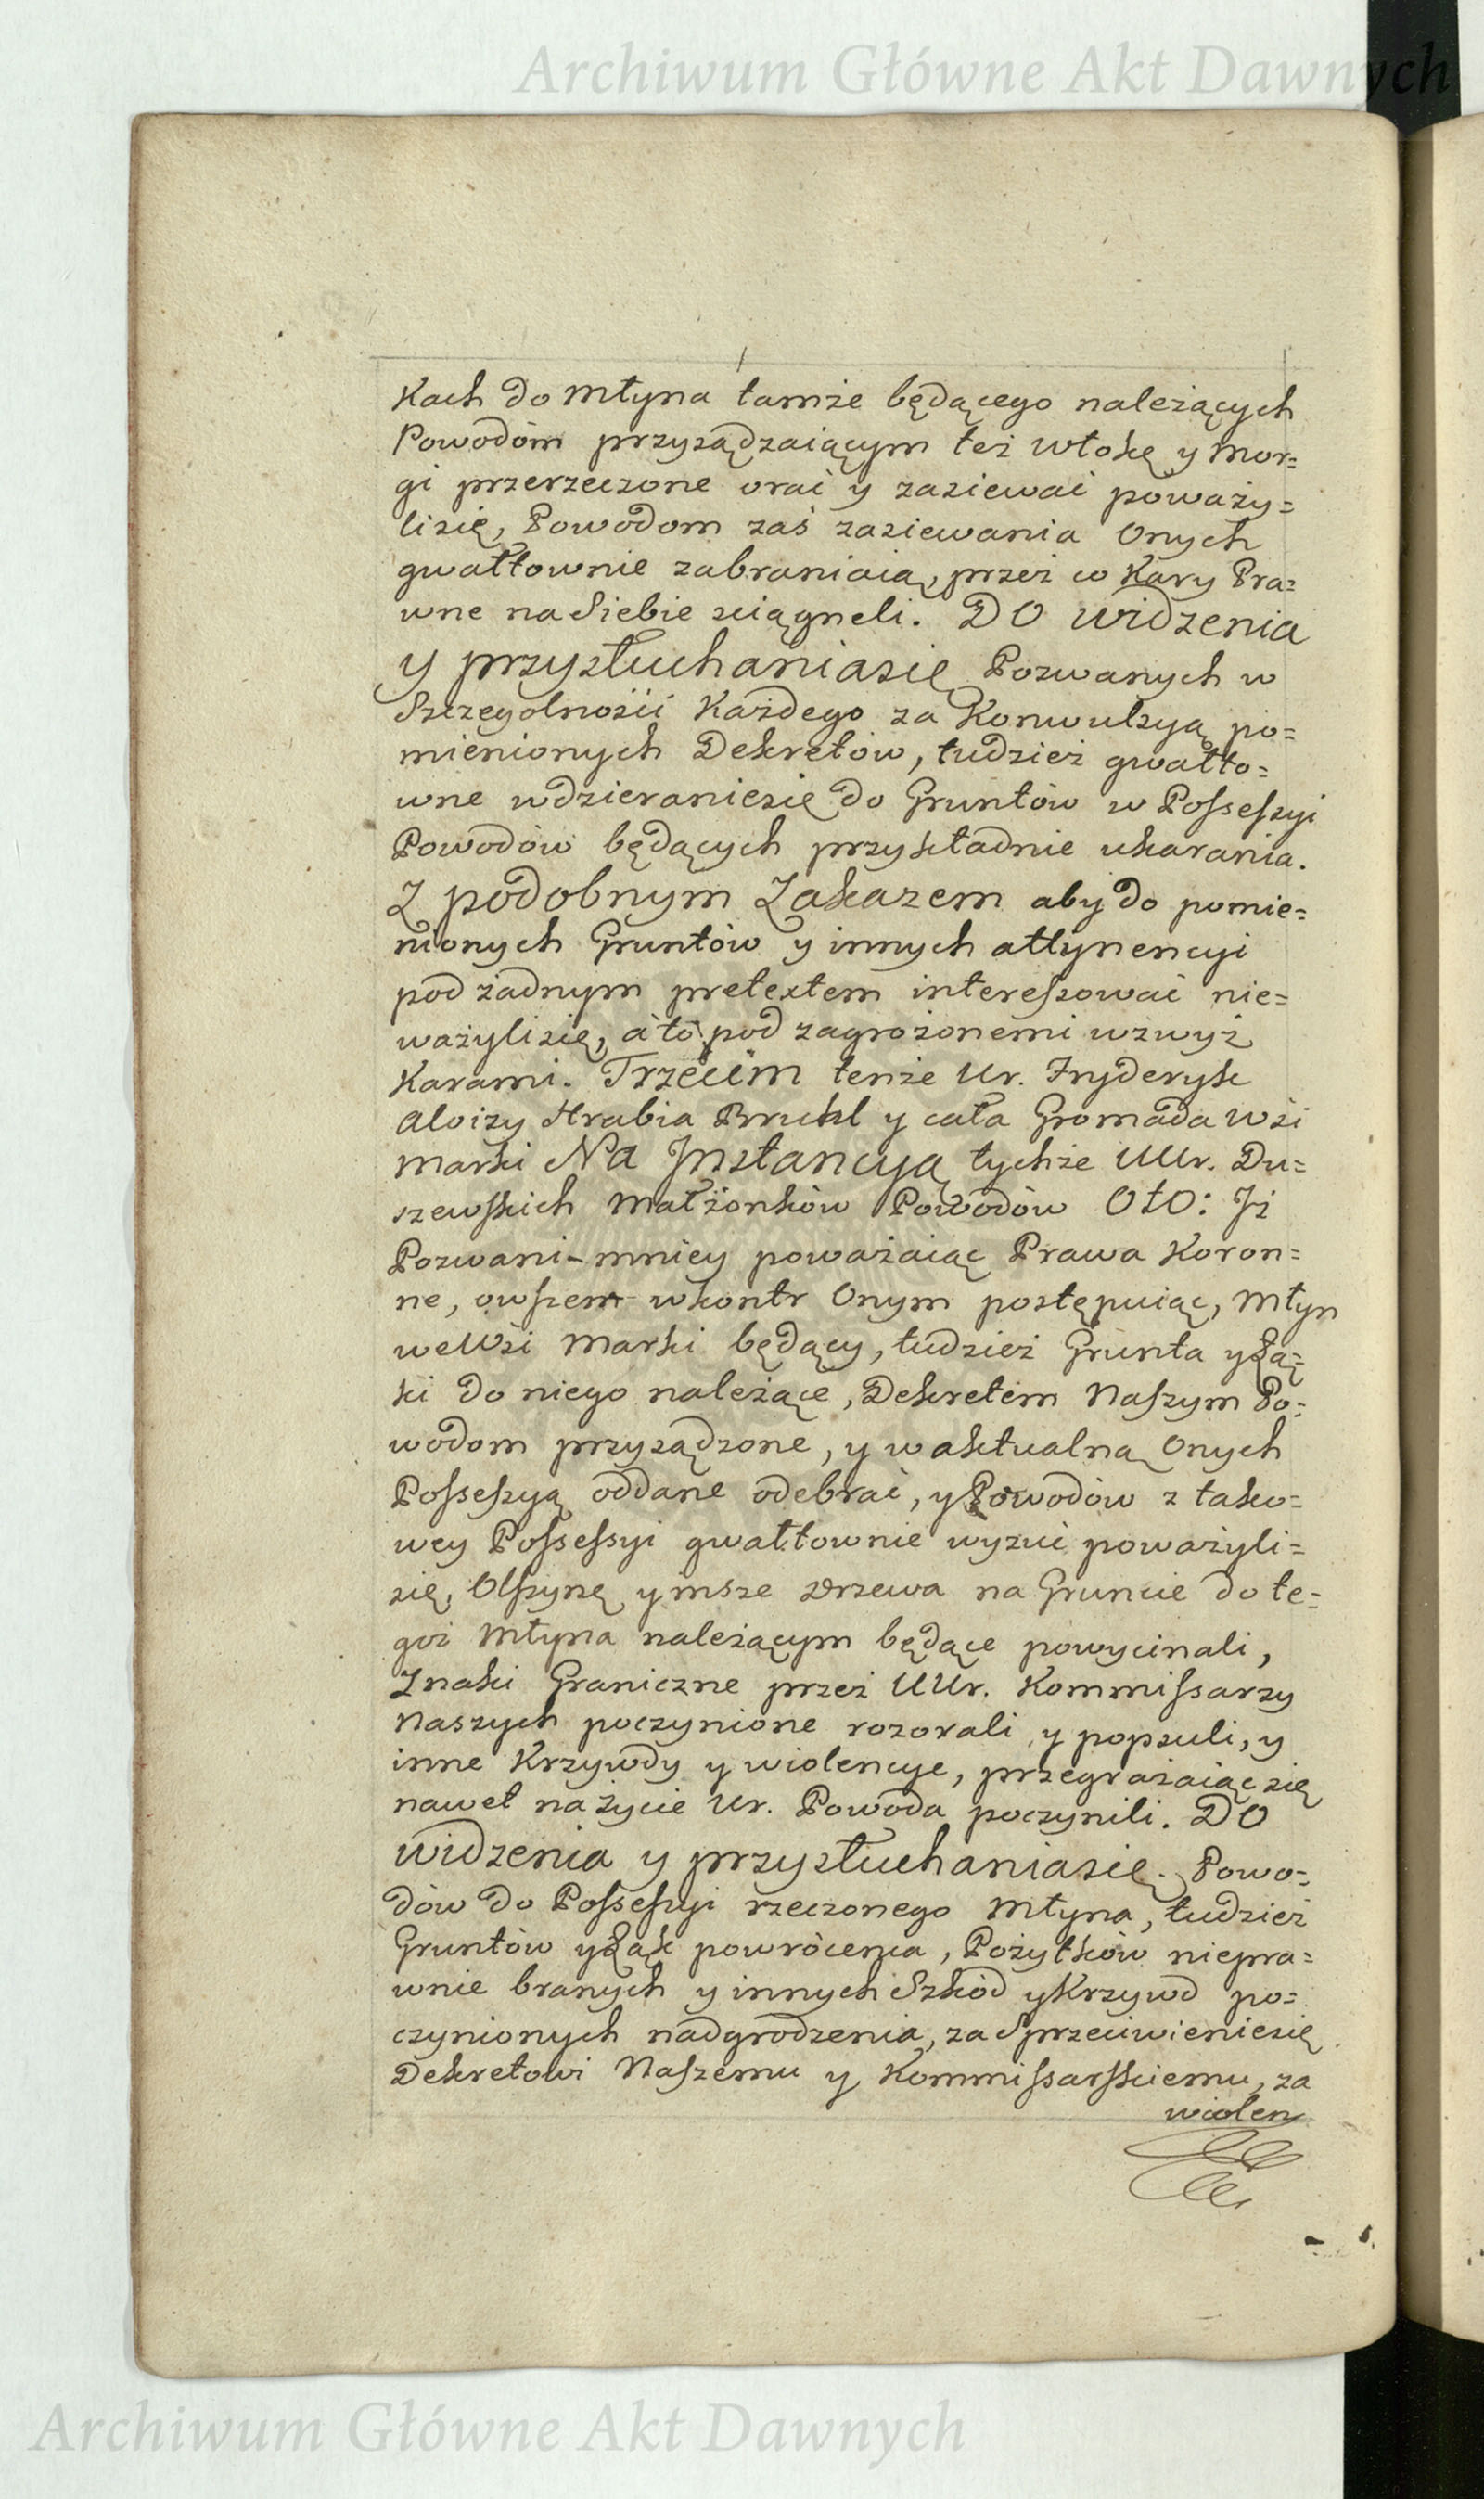 Archiwum Główne Akt Dawnych
Kach do Młyna tamże będącego należących
Powodóm przysądzaiącym też Włokę y Mor=
gi przerzeczone orać y zasiewać poważy=
lisię, Powodom zaś zasiewania Onych
gwałtownie zabraniaią, przez co Kary Pra=
wne na Siebie sciągneli. DO widzenia
y przysłuchaniasię Pozwanych w
Szczegolności Każdego za Konwulsyą po=
mienionych Dekretów, tudzież gwałto=
wne wdzieraniesię do Gruntów w Possessyi
Powodów będących przykładnie ukarania.
Z podobnym Zakazem aby do pomie=
nionych Gruntów y innych attynencyi
pod żadnym pretextem interessować nie=
ważylisię, a to pod zagrożonemi wzwyż
Karami. Trzecim tenże Ur. Fryderyk
Aloizy Hrabia Bruhl y cała Gromada Wsi
Marki Na Jnstancyą tychże UUr. Du=
szewskich Małżonków Powodów OtO: Jż
Pozwani mniey poważaiąc Prawa Koron=
ne, owszem wkontr Onym postępuiąc, Młyn
weWsi Marki będący, tudzież Grunta yŁą=
ki do niego należące, Dekretem Naszym Po=
wodom przysądzone, y w aktualną Onych
Possessyą oddane odebrać, y Powodów z tako=
wey Possessyi gwałtownie wyzuć poważyli=
się, Olszynę y insze Drzewa na Gruncie do te=
goż Młyna należącym będące powycinali,
Znaki Graniczne przez UUr. Kommissarzy
Naszych poczynione rozorali y popsuli, y
inne Krzywdy y wiolencye, przegrażaiąc się
nawet na życie Ur. Powoda poczynili. DO
widzenia y przysłuchaniasię. Powo=
dów do Possessyi rzeczonego Młyna, tudzież
Gruntów yŁąk powrócenia, Pożytków niepra=
wnie branych y innych Szkód y Krzywd po=
czynionych nadgrodzenia, za Sprzeciwieniesię
Dekretowi Naszemu y Kommissarskiemu, za
wiolen
Archiwum Główne Akt Dawnych